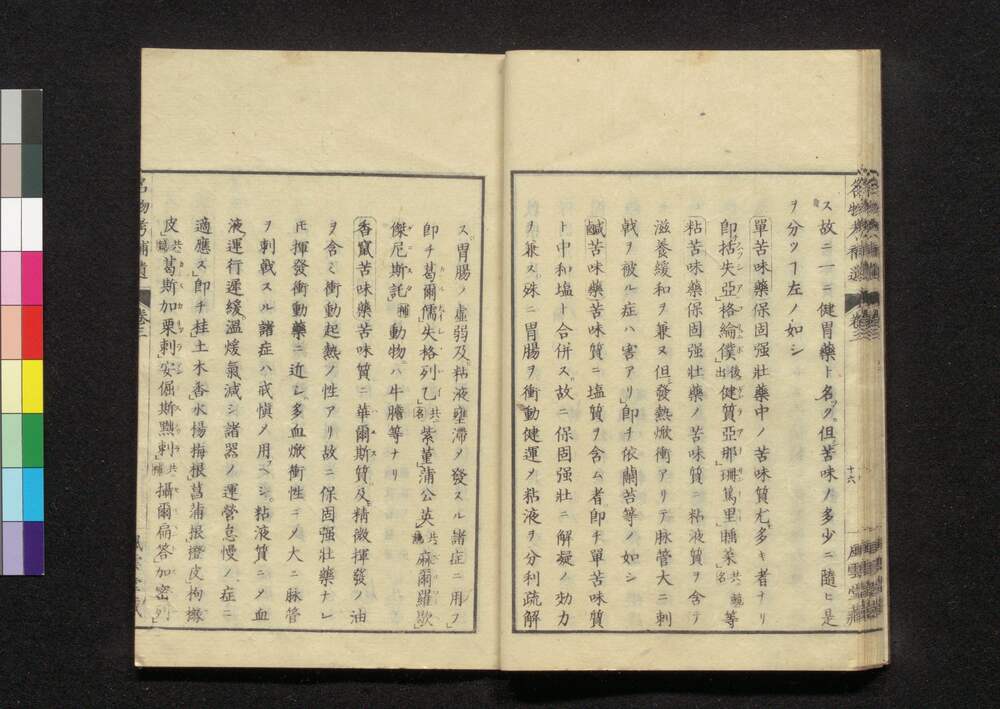 ス故ニ一ニ健胃藥ト名ク但苦味ノ多少ニ隨ヒ是
ヲ分ツヿ左ノ如シ
單苦味藥保固强壯藥中ノ苦味質尤多キ者ナリ
即括失亞格綸僕後出健質亞那珊篤里䑃菜共名等
粘苦味藥保固强壯藥ノ苦味質ニ粘液質ヲ含テ
滋養緩和ヲ兼ヌ但發熱焮衝アリテ脉管大ニ刺
戟ヲ被ル症ハ害アリ即チ依蘭苔等ノ如シ
鹹苦味藥苦味質ニ塩質ヲ含ム者即チ單苦味質
ト中和塩ト合併ス故ニ保固强壯ニ解凝ノ効力
ヲ兼ス殊ニ胃腸ヲ衝動健運メ粘液ヲ分利疏解
十六
風雲堂藏
ス胃腸ノ虛弱及粘液壅滯ヲ發スル諸症ニ用フ
即チ葛爾儒失格列乙共名紫菫蒲公英共麻爾羅歇
傑尼斯託補動物ハ牛膽等ナリ
香竄苦味藥苦味質ニ華爾斯質及精微揮發ノ油
ヲ含ミ衝動起熱ノ性アリ故ニ保固强壯藥ナレ
𪜈揮發衝動藥ニ近シ多血焮衝性ニメ大ニ脉管
ヲ刺戟スル諸症ハ戒愼メ用フヘシ粘液質ニメ血
液運行遲緩溫煖氣減シ諸器ノ運營怠慢ノ症ニ
適應ス即チ桂土木香水楊梅根菖蒲根橙皮枸櫞
皮共葛斯加栗刺安倔斯㸃刺共補攝爾扁答加密列
名物考補遺
卷三